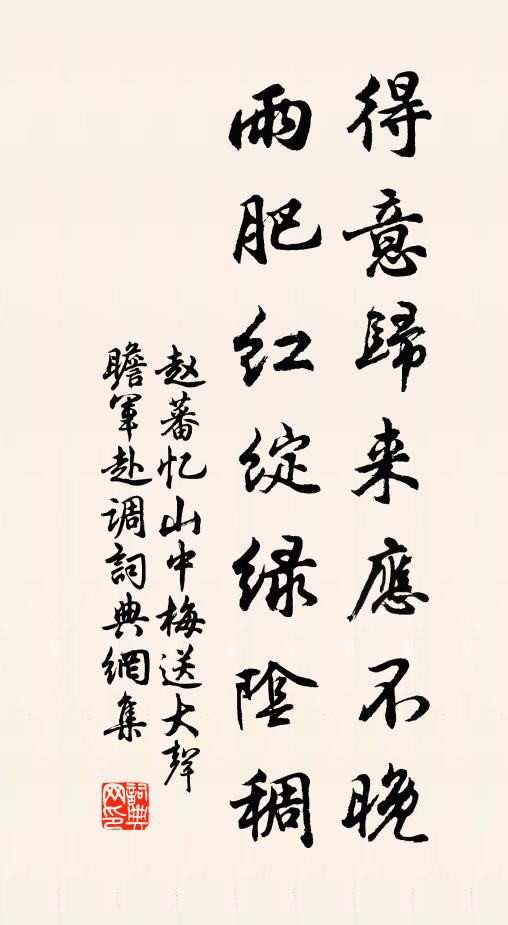 得意歸来應不晚
雨肥紅綻緑陰稠
赵蕃忆山中梅送大聲
瞻軍赴调詞典網集
詞典网印